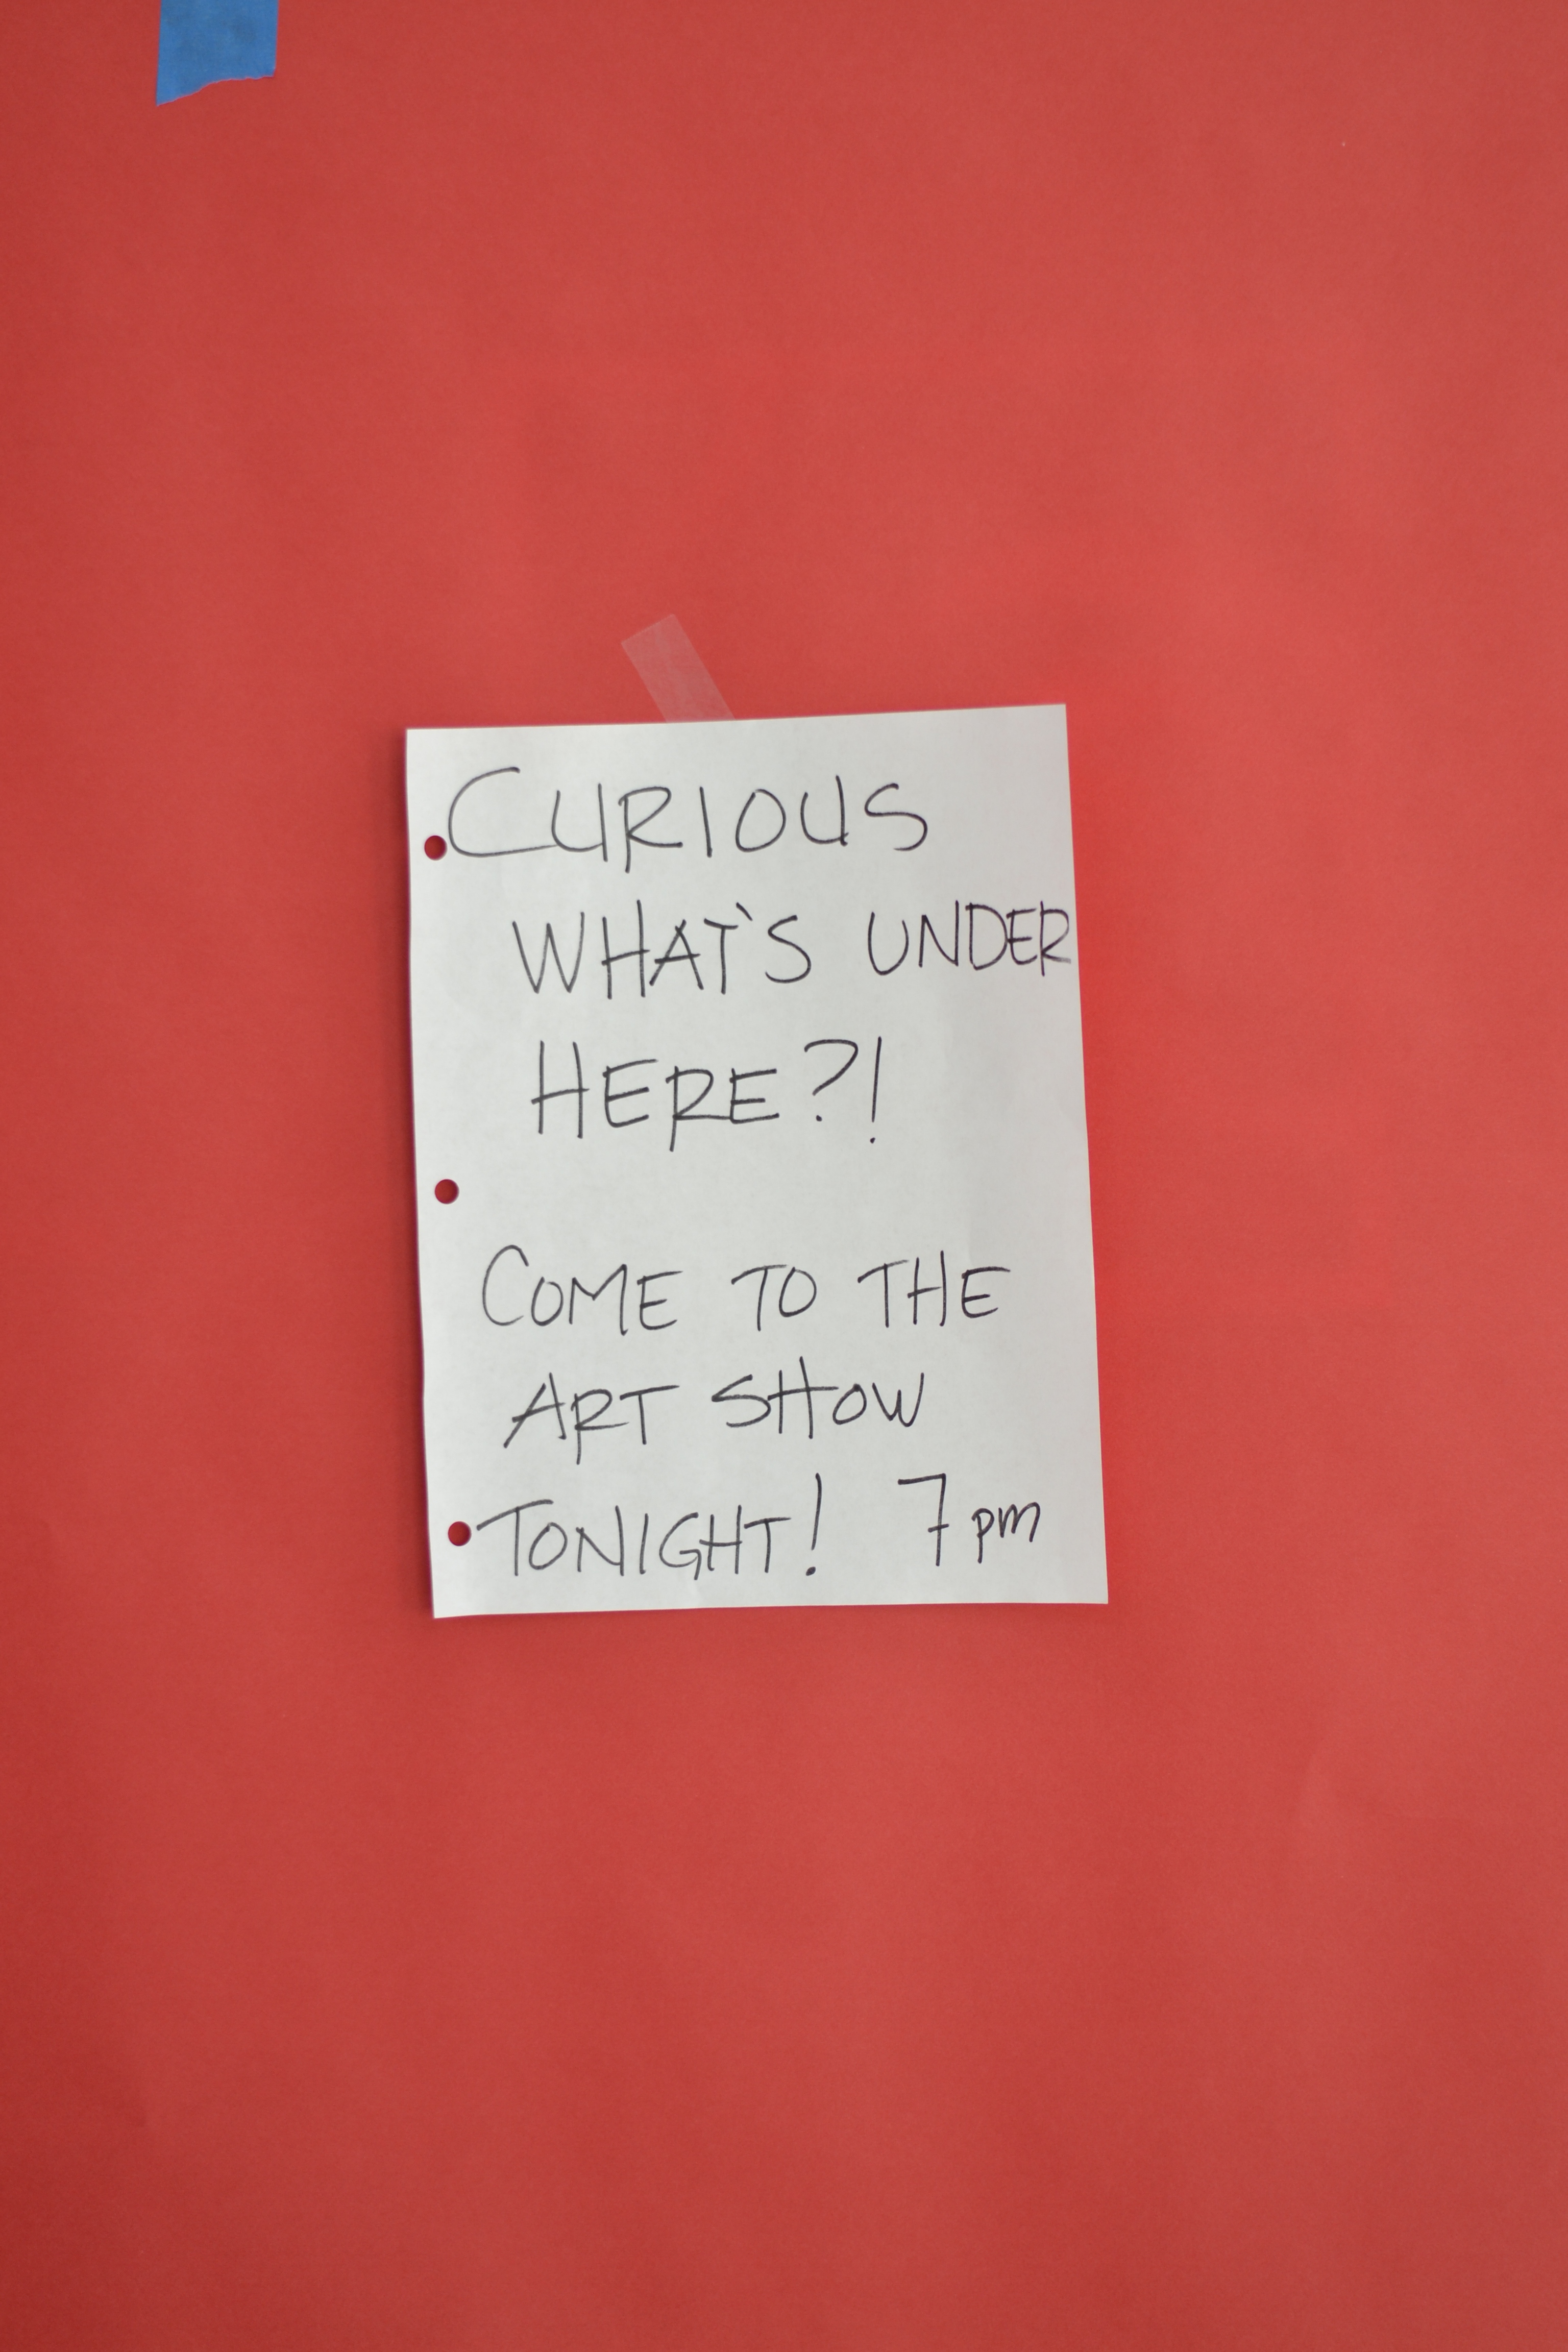 CURIOUS
WHAT'S UNDER
HERE?!
COME TO THE
ART SHOW
TONIGHT! 7pm